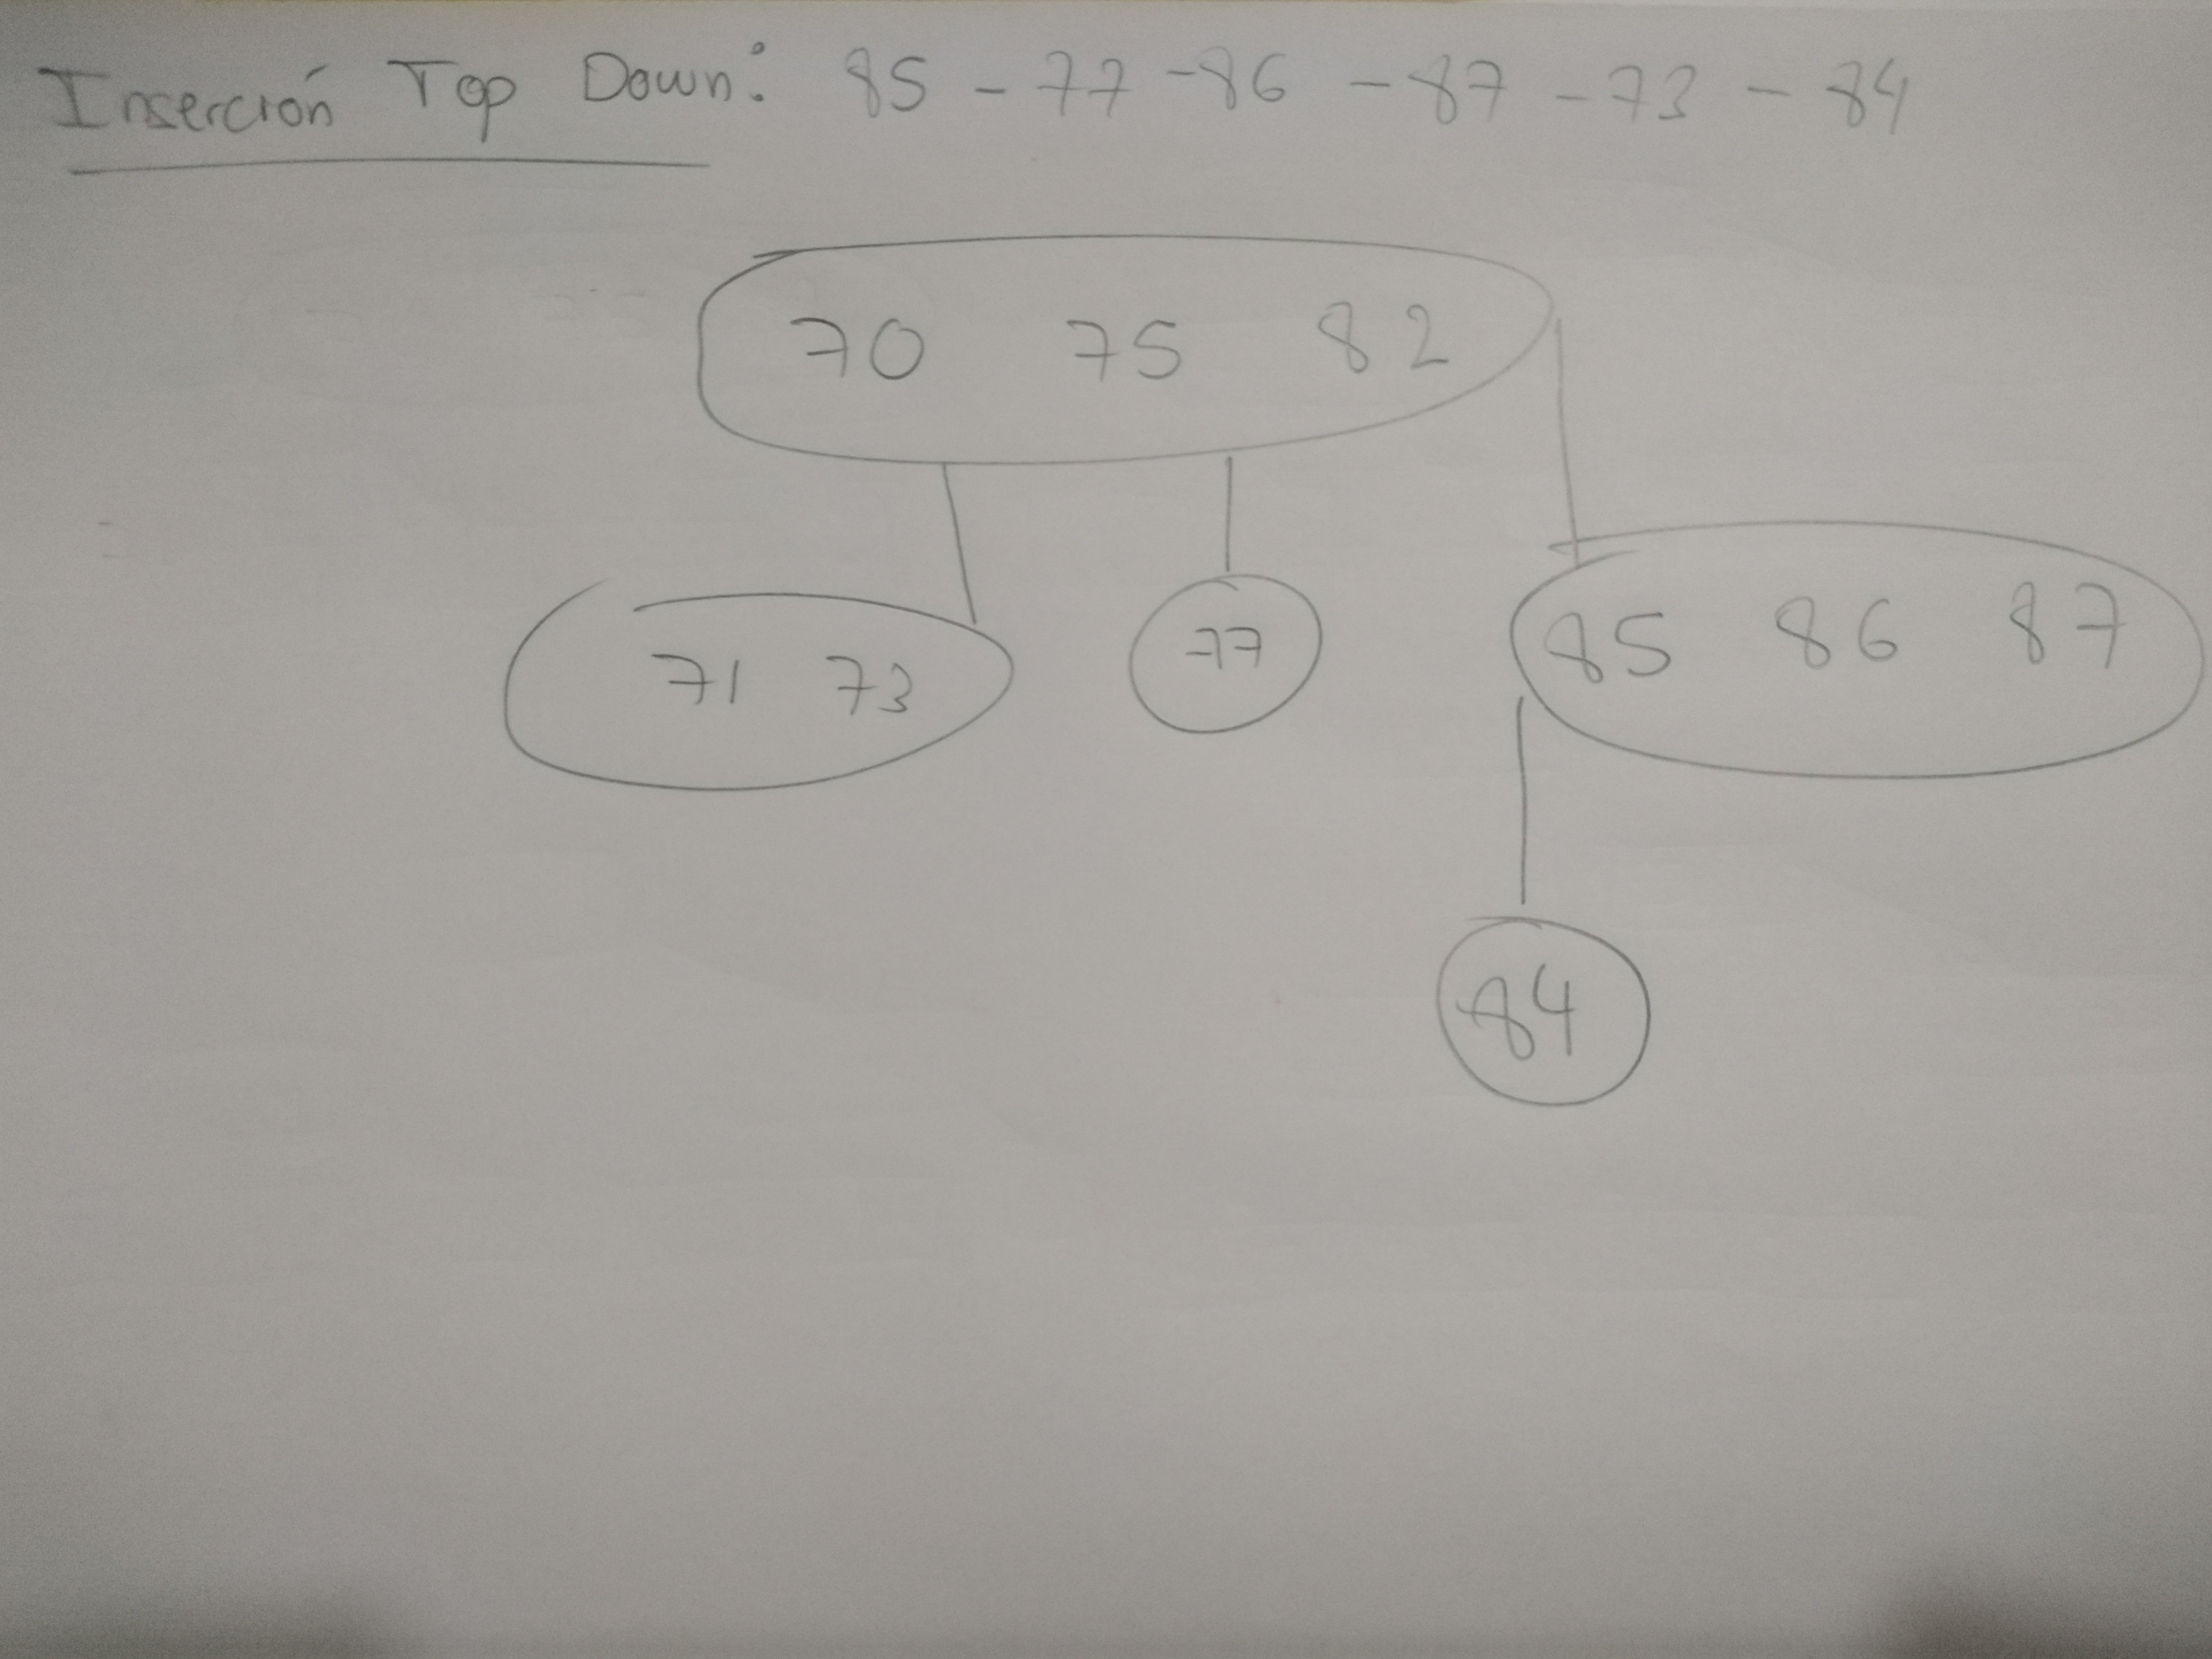 Inserción Top Down: 85 - 77 - 86 - 87 - 73 - 84
70 75 82
71 73
77
85 86 87
84